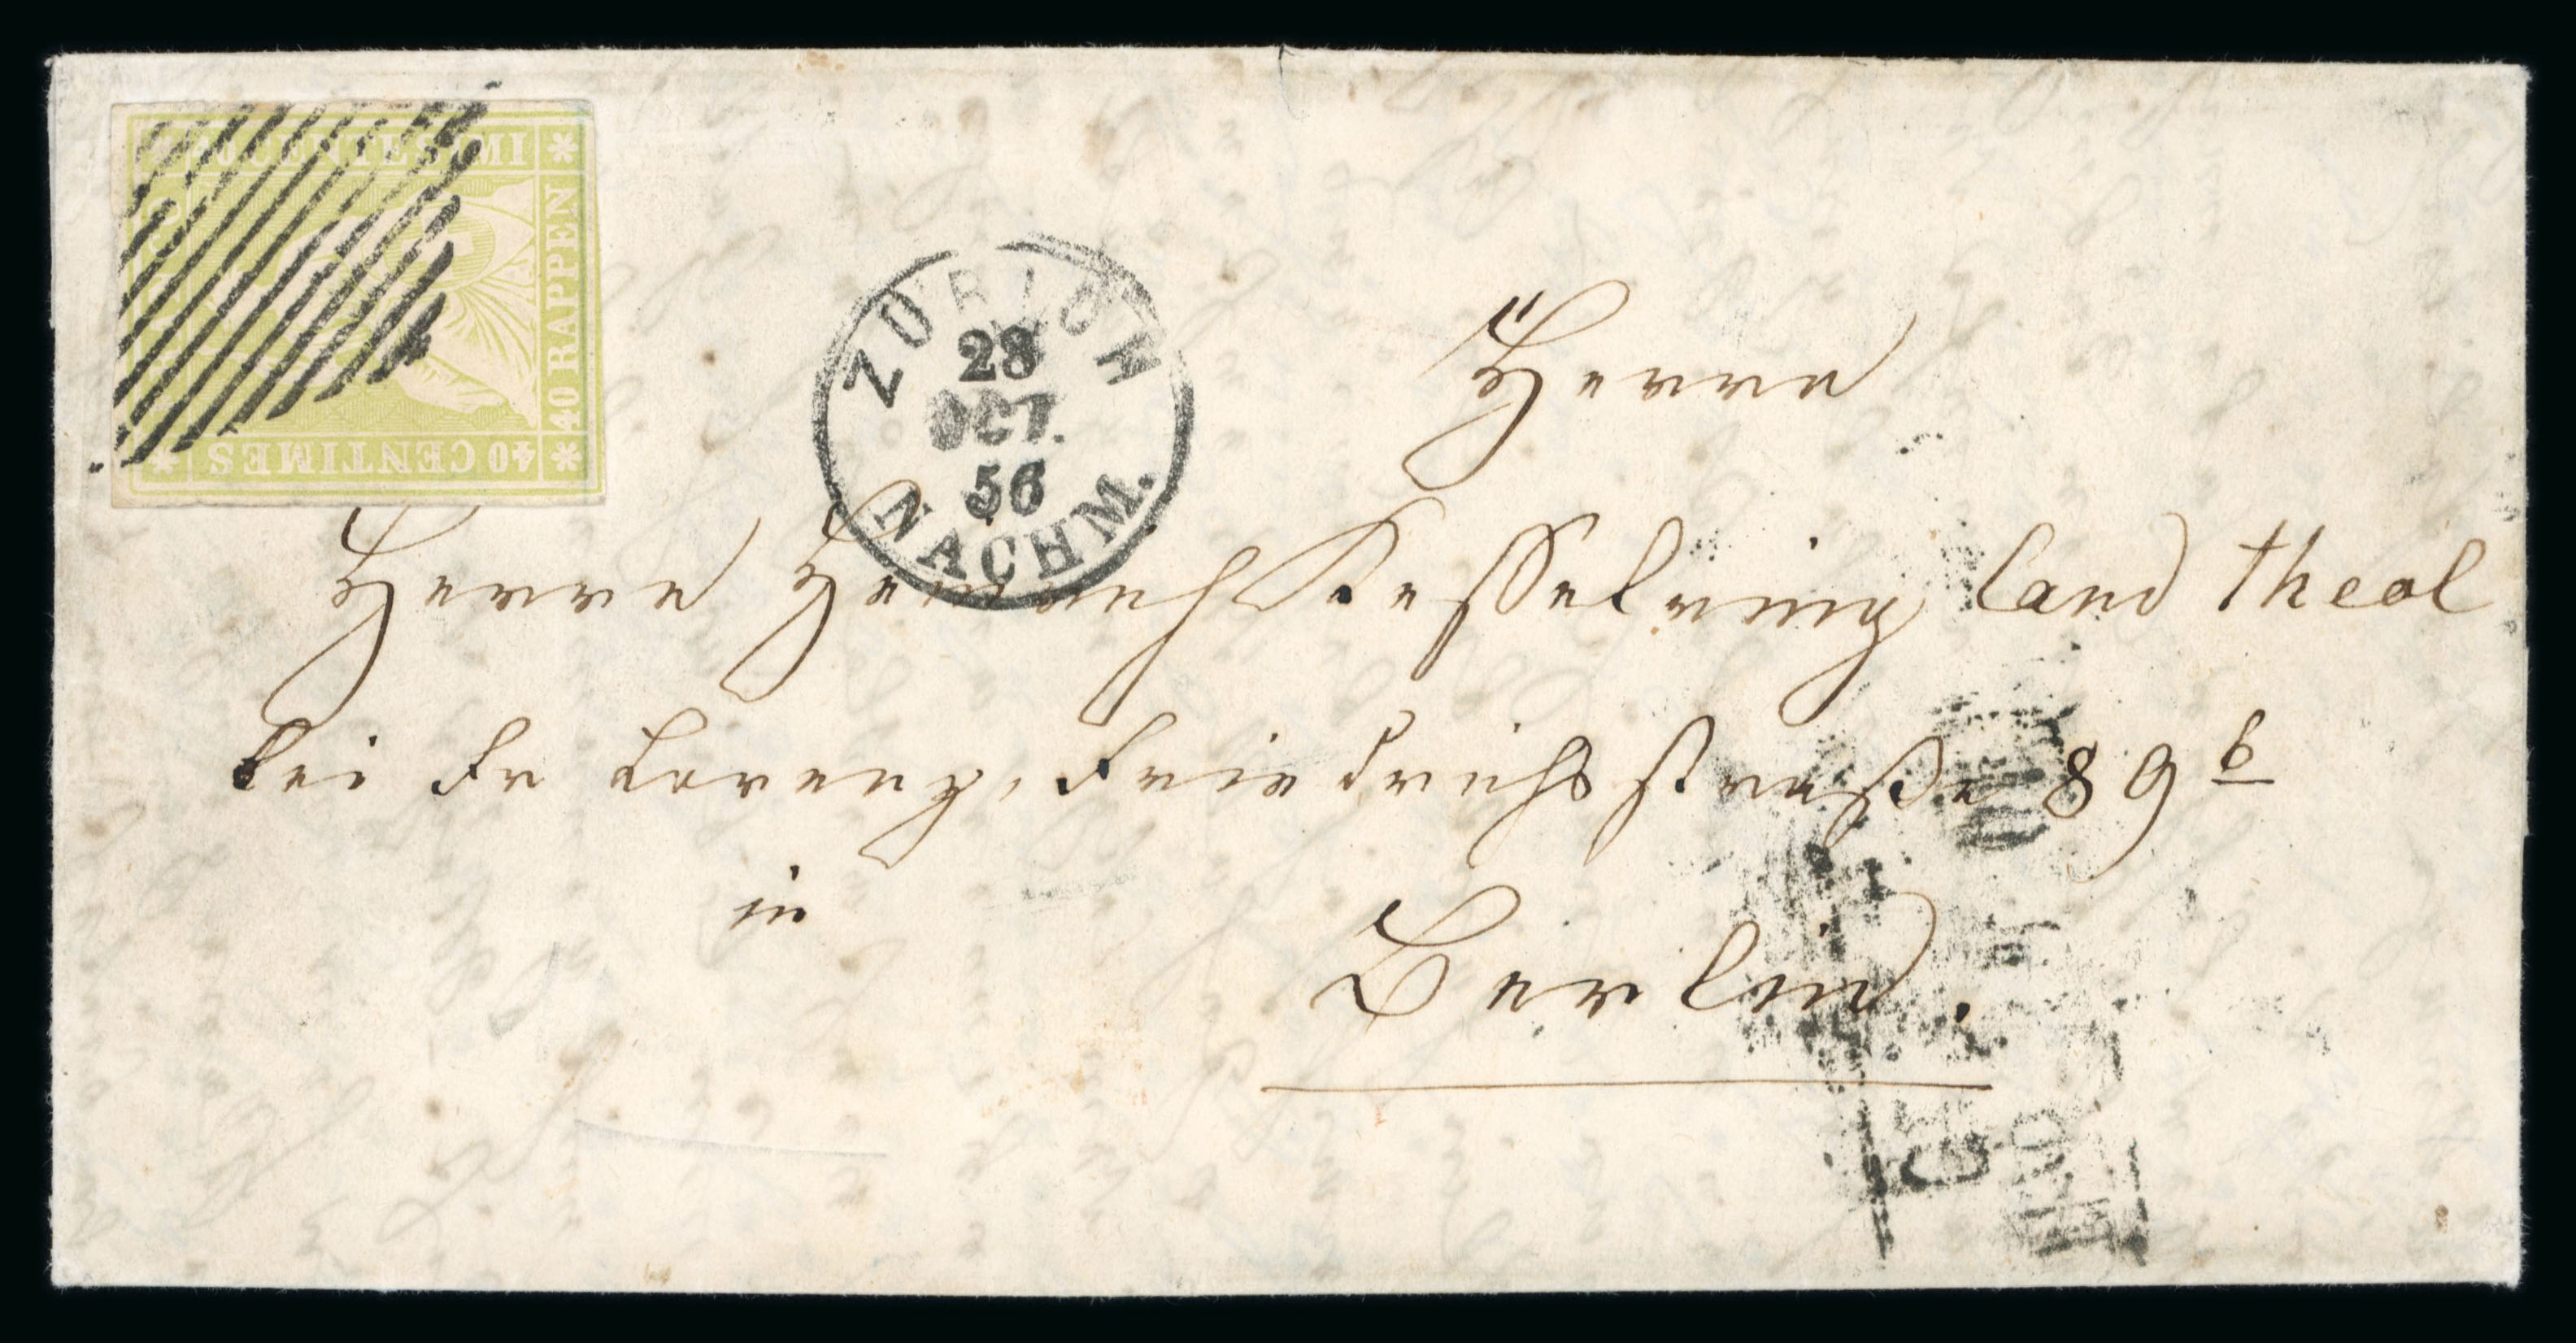 CENTESIMI
40 RAPPEN
40 CENTIMES
ZÜRICH
28
OCT.
56
NACHM.
Herrn
Herrn Heinrich Kesselring Cand theol
bei Fr Lorenz, Friedrichsstraße 89 b
in
Berlin.